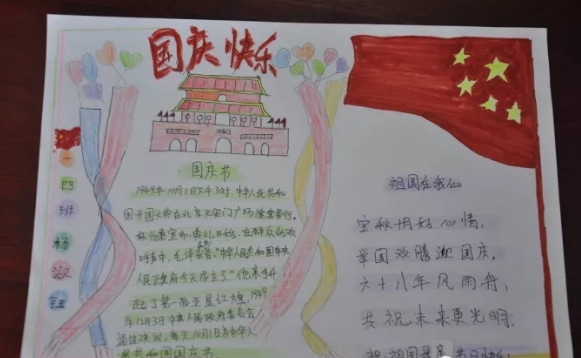 国庆快乐
一
四
班
杨
国庆书
1949年10月1日下午3时,中华人民共和
国开国大典在北京天安门广场隆重举行。
林伯渠宣布典礼开始,在群众的欢
呼声中,毛泽东
"中华人民共和国中央
人民政府今天成立了"
起了第一面五星红旗,1949
年12月3日中央人民政府委员会
决议,每年10月1日为中华
人民共和国国庆书
祖国在我心
金秋明好心情,
举国欢腾迎国庆,
六十八年风雨舟,
共祝未来更光明,
祝祖国